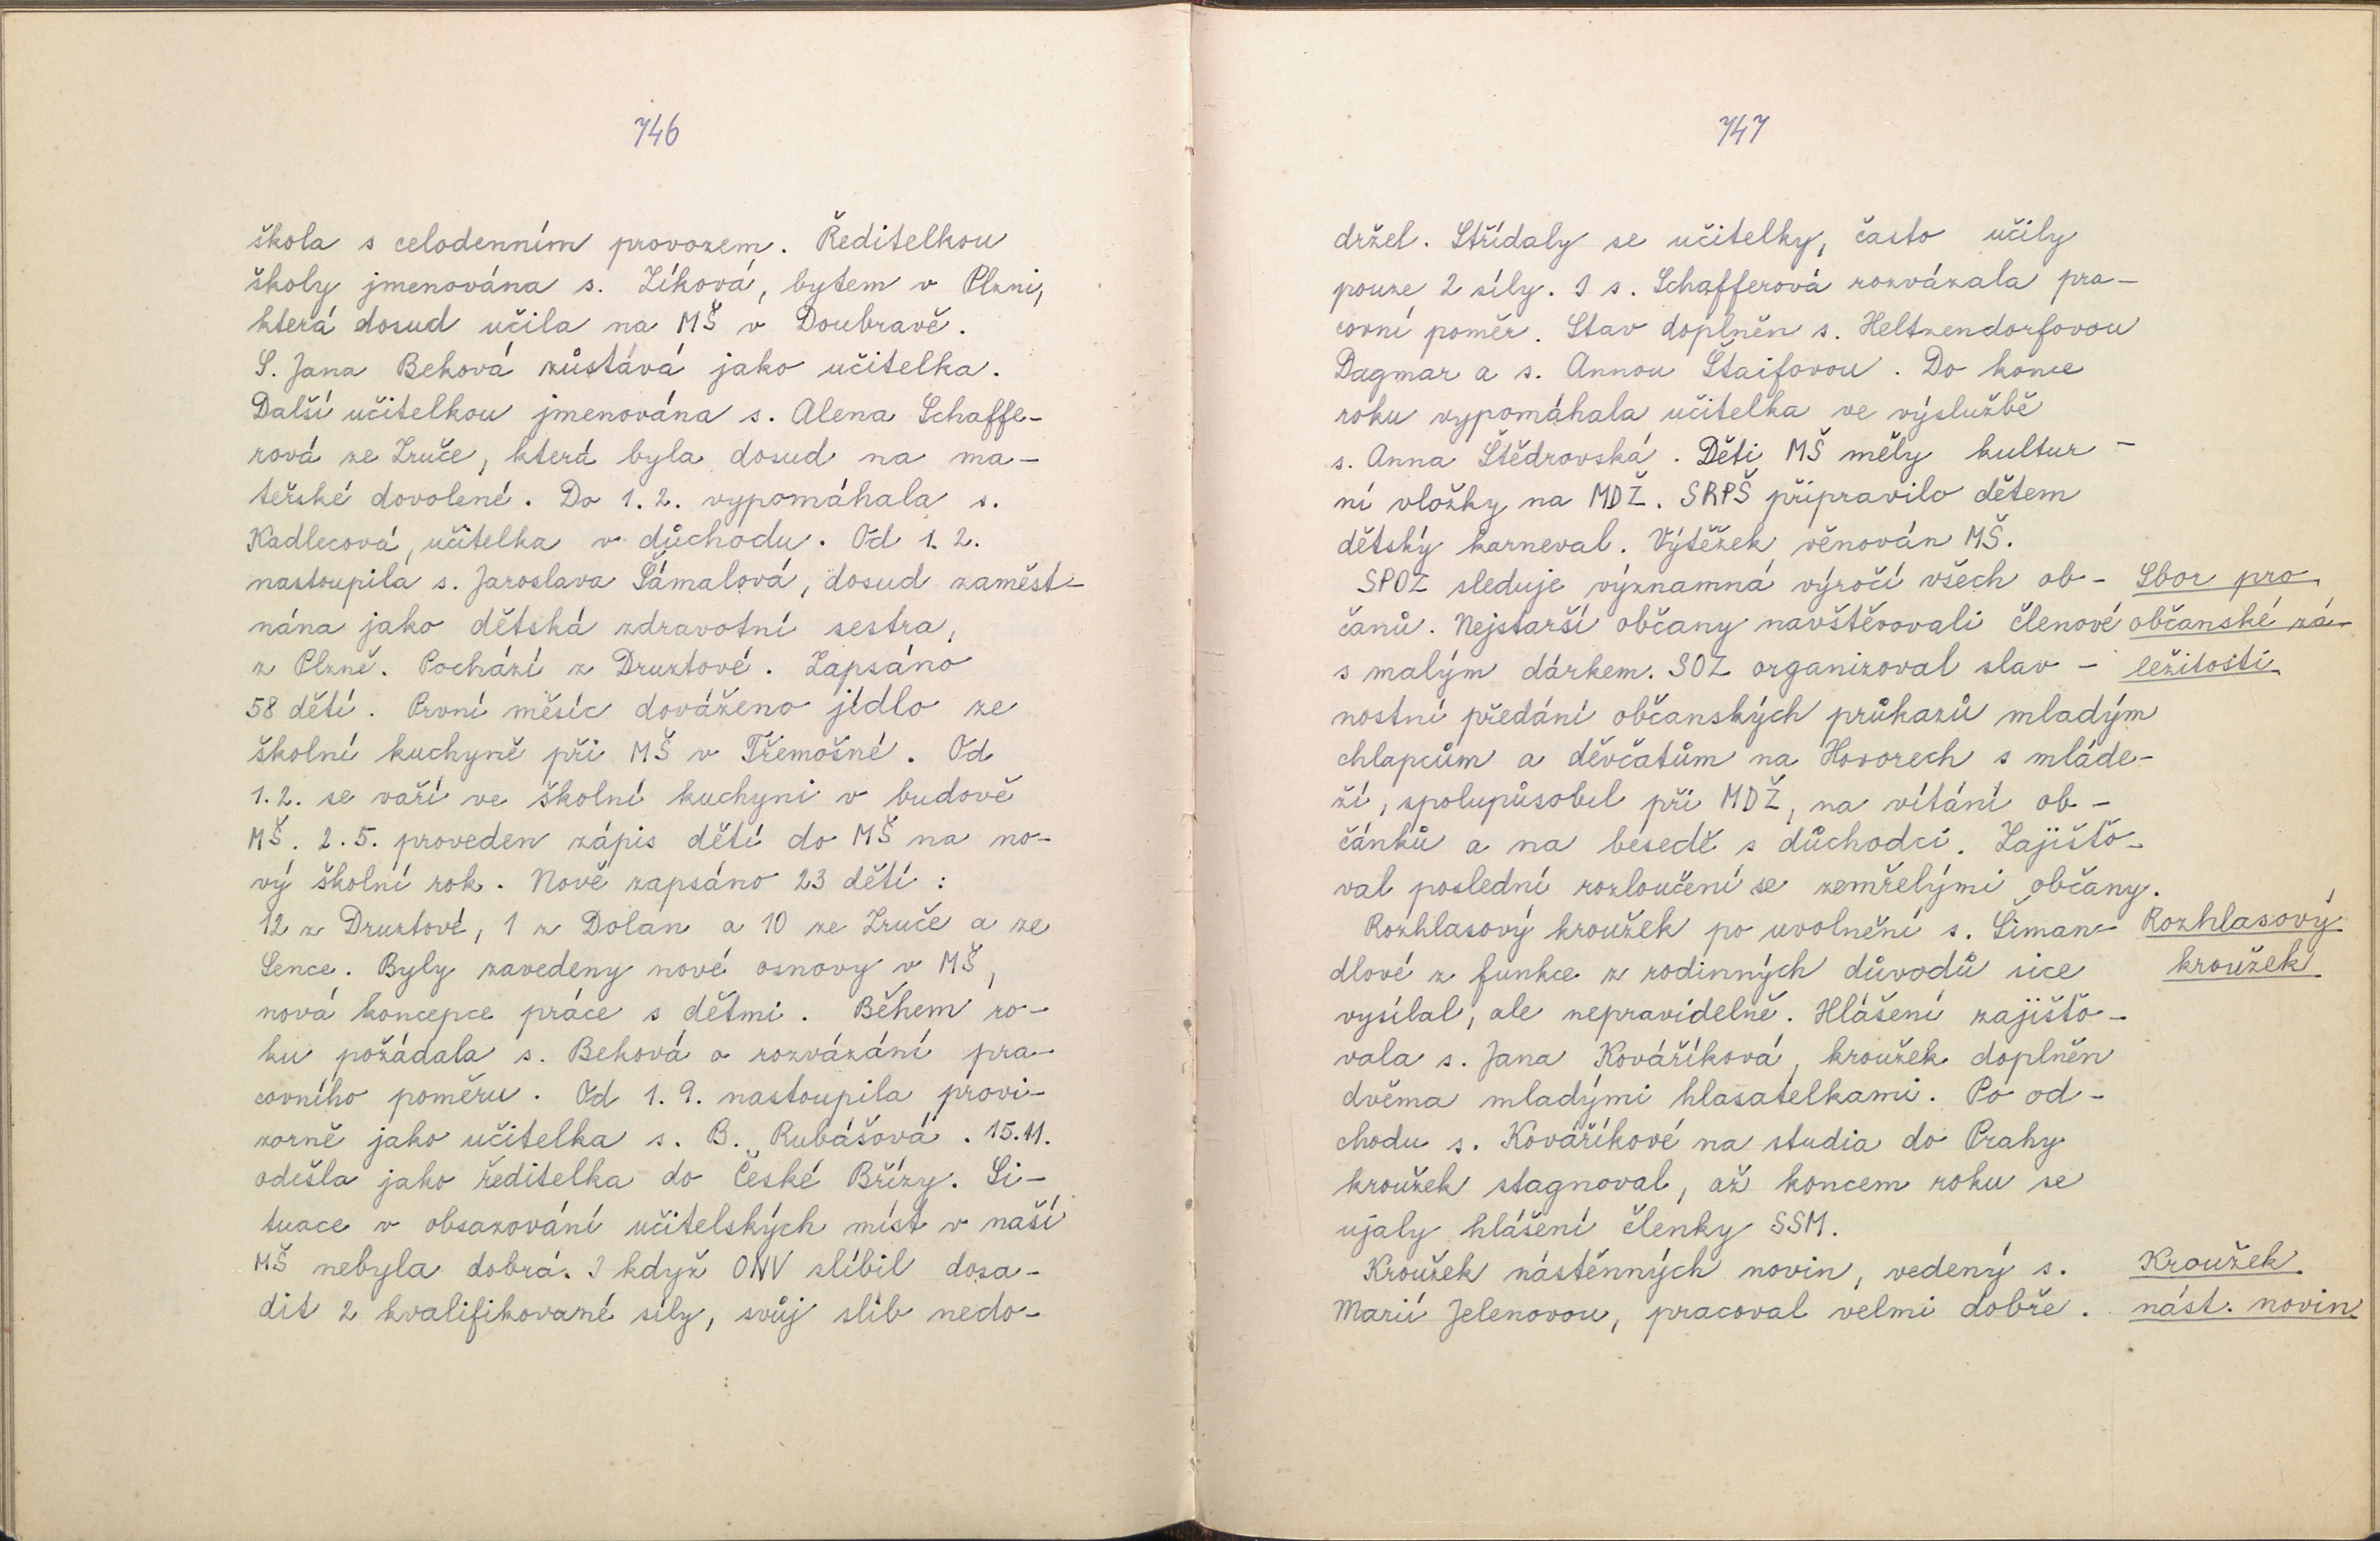 746
škola s celodenním provozem. Ředitelkou
školy jmenována s. Zíková, bytem v Plzni,
která dosud učila na MŠ v Doubravě.
S. Jana Beková zůstává jako učitelka.
Další učitelkou jmenována s. Alena Schaffe-
rová ze Zruče, která byla dosud na ma-
teřské dovolené. Do 1. 2. vypomáhala s.
Kadlecová, učitelka v důchodu. Od 1. 2.
nastoupila s. Jaroslava Šámalová, dosud zaměst-
nána jako dětská zdravotní sestra,
z Plzně. Pochází z Druztové. Zapsáno
58 dětí. První měsíc dováženo jídlo ze
školní kuchyně při MŠ v Třemošné. Od
1. 2. se vaří ve školní kuchyni v budově
MŠ. 2. 5. proveden zápis dětí do MŠ na no-
vý školní rok. Nově zapsáno 23 dětí :
12 z Druztové, 1 z Dolan a 10 ze Zruče a ze
Sence. Byly zavedeny nové osnovy v MŠ,
nová koncepce práce s dětmi. Během ro-
ku požádala s. Beková o rozvázání pra-
covního poměru. Od 1. 9. nastoupila provi-
zorně jako učitelka s. B. Rubášová. 15. 11.
odešla jako ředitelka do České Břízy. Si-
tuace v obsazování učitelských míst v naší
MŠ nebyla dobrá. I když ONV slíbil dosa-
dit 2 kvalifikované síly, svůj slib nedo-
747
držel. Střídaly se učitelky, často učily
pouze 2 síly. I s. Schafferová rozvázala pra-
covní poměr. Stav doplněn s. Heltzendorfovou
Dagmar a s. Annou Štaifovou. Do konce
roku vypomáhala učitelka ve výslužbě
s. Anna Štědrovská. Děti MŠ měly kultur-
ní vložky na MDŽ. SRPŠ připravilo dětem
dětský karneval. Výtěžek věnován MŠ.
SPOZ sleduje významná výročí všech ob-
čanů. Nejstarší občany navštěvovali členové
s malým dárkem. SOZ organizoval slav-
nostní předání občanských průkazů mladým
chlapcům a děvčatům na Hovorech s mláde-
ží, spolupůsobil při MDŽ, na vítání ob-
čánků a na besedě s důchodci. Zajišťo-
val poslední rozloučení se zemřelými občany.
Rozhlasový kroužek po uvolnění s. Šiman-
dlové z funkce z rodinných důvodů sice
vysílal, ale nepravidelně. Hlášení zajišťo-
vala s. Jana Kováříková, kroužek doplněn
dvěma mladými hlasatelkami. Po od-
chodu s. Kováříkové na studia do Prahy
kroužek stagnoval, až koncem roku se
ujaly hlášení členky SSM.
Kroužek nástěnných novin, vedený s.
Marií Jelenovou, pracoval velmi dobře.
Sbor pro
občanské zá-
ležitosti
Rozhlasový
kroužek
Kroužek
nást. novin